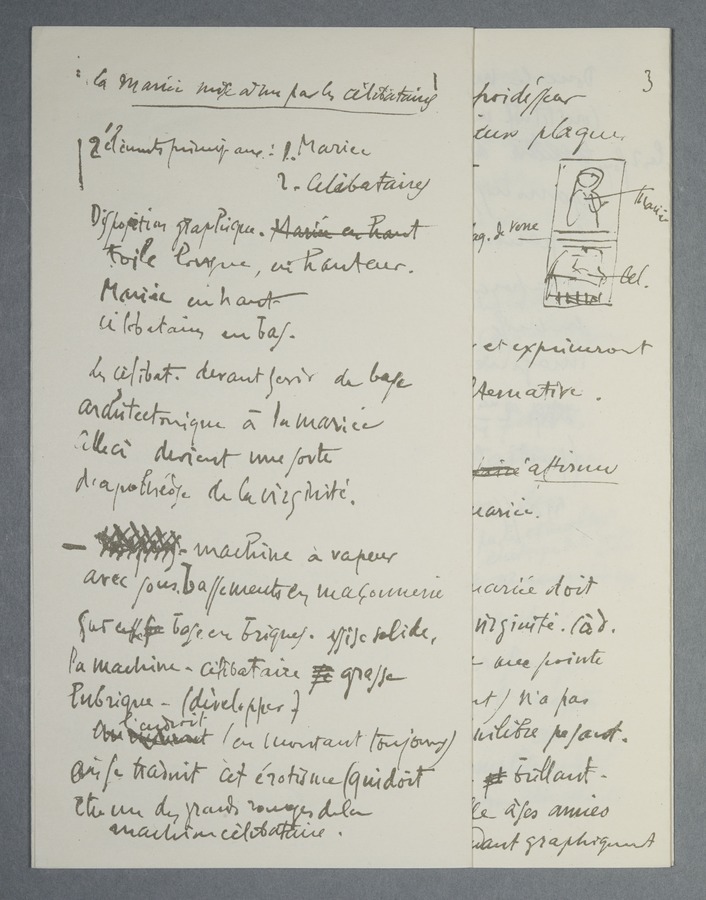 la mariée mise à nu par les célibataires
2 éléments principaux : 1. Mariée
2. Célibataires
Disposition graphique. Mariée en haut
toile longue, en hauteur.
Mariée en haut
célibataires en bas.
Les célibat. devant servir de base
architectonique à la mariée
celle ci devient une sorte
d'apothéose de la virginité.
- machine à vapeur
avec soubassements en maçonnerie
Sur cette base en briques. assise solide,
la machine-célibataire grasse
lubrique - (développer)
l'endroit
(en montant toujours)
où se traduit cet érotisme (qui doit
être un des grands rouages de la
machine célibataire.
3
froidisseur
plaque
Mariée
de verre
Cel.
et exprimeront
ternative.
affirmer
ariée.
mariée doit
virginité. Càd.
avec pointe
t) n'a pas
uilibre pesant.
brillant -
ses armées
dant graphiquement